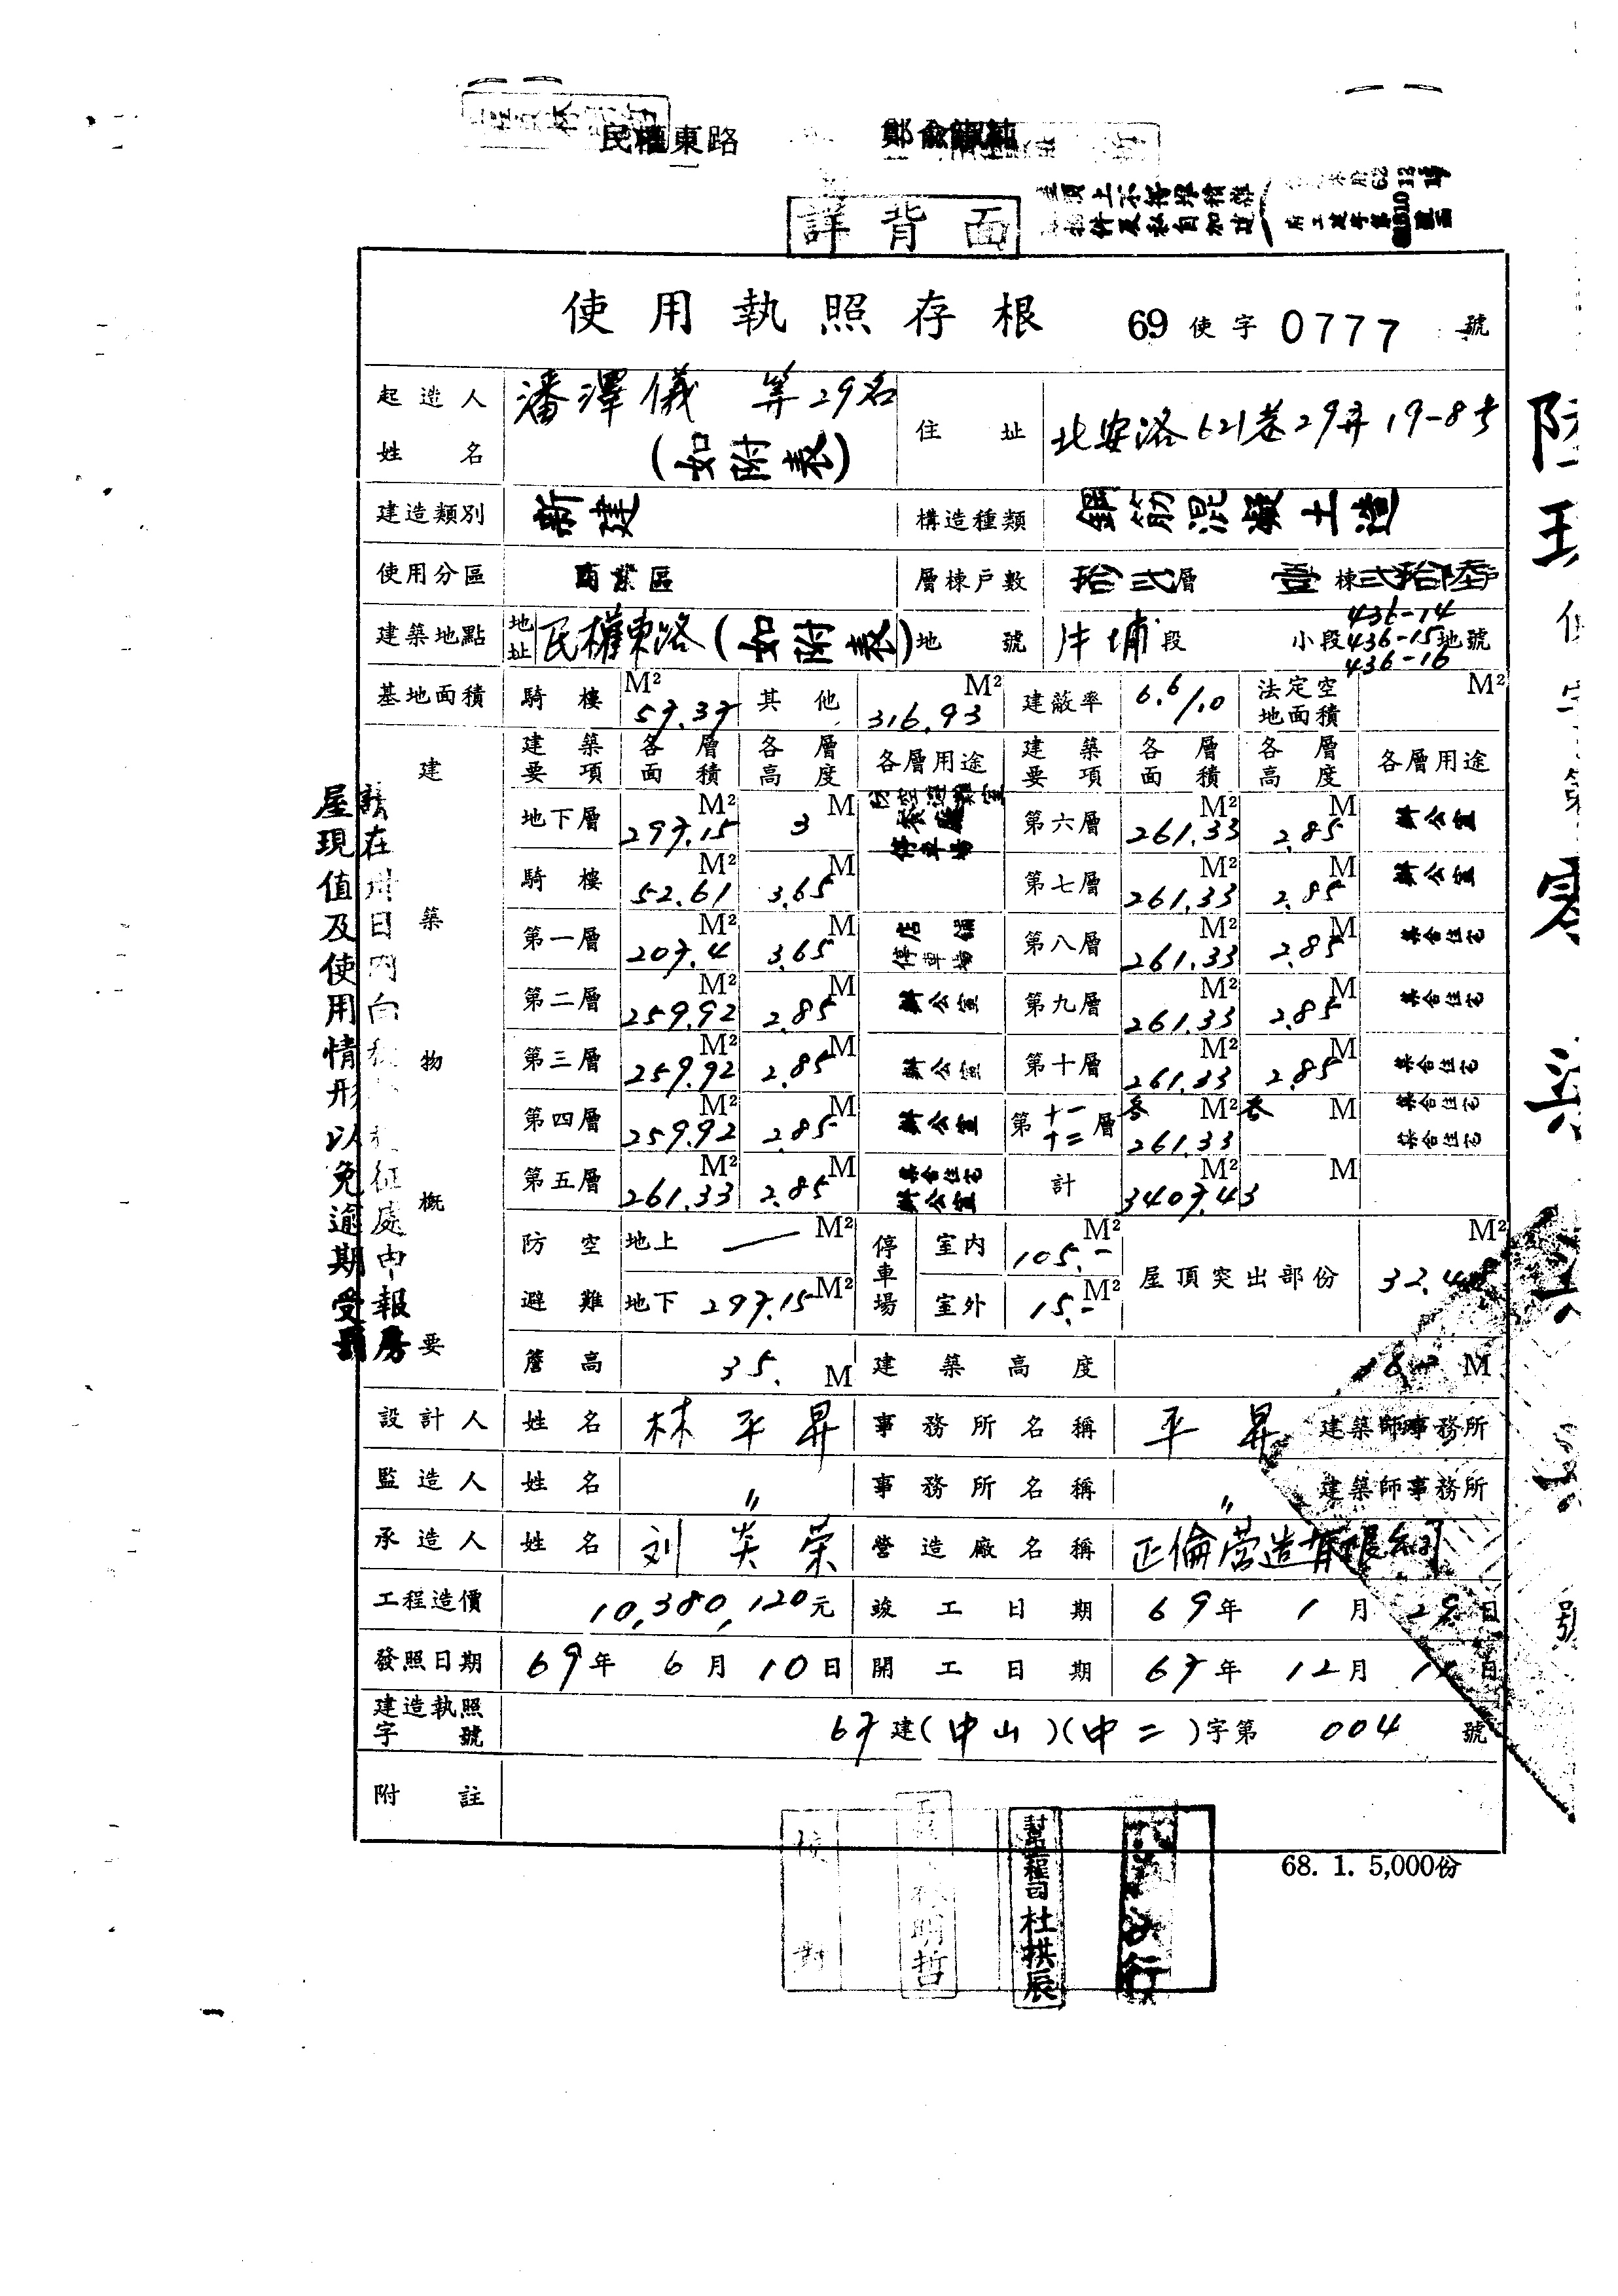 民權東路
詳背面
使用執照存根 69 使字 0777 號
起造人姓名 潘澤儀 等29名 (如附表) 住址 北安路621巷29弄19-8号
建造類別 新建 構造種類 鋼筋混凝土造
使用分區 商業區 層棟戶數 拾弍層 壹棟弍拾陸戶
建築地點 地址 民權東路(如附表) 地號 牛埔段 小段 436-14 436-15 436-16 地號
基地面積 騎樓 57.37 M² 其他 316.93 M² 建蔽率 6.6/10 法定空地面積 M²
建築物概要
建築要項 各層面積 各層高度 各層用途 建築要項 各層面積 各層高度 各層用途
地下層 297.15 M² 3 M 停車場 第六層 261.33 M² 2.85 M 辦公室
騎樓 52.61 M² 3.65 M 第七層 261.33 M² 2.85 M 辦公室
第一層 207.4 M² 3.65 M 店舖 停車場 第八層 261.33 M² 2.85 M 集合住宅
第二層 259.92 M² 2.85 M 辦公室 第九層 261.33 M² 2.85 M 集合住宅
第三層 259.92 M² 2.85 M 辦公室 第十層 261.33 M² 2.85 M 集合住宅
第四層 259.92 M² 2.85 M 辦公室 第十一十二層 各 261.33 M² 各 M 集合住宅 集合住宅
第五層 261.33 M² 2.85 M 集合住宅 辦公室 計 3407.43 M² M
防空避難 地上 — M² 停車場 室內 105.- M² 屋頂突出部份 M²
地下 297.15 M² 室外 15.- M²
簷高 35. M 建築高度 M
設計人 姓名 林平昇 事務所名稱 平昇 建築師事務所
監造人 姓名 〃 事務所名稱 〃 建築師事務所
承造人 姓名 刘炎荣 營造廠名稱 正倫营造有限公司
工程造價 10,380,120元 竣工日期 69年 1月 29日
發照日期 69年 6月 10日 開工日期 67年 12月 日
建造執照字號 67建(中山)(中二)字第 004 號
附註
68. 1. 5,000份
校對
明哲
杜拱辰
行
屋現值及使用情形以免逾期受罰